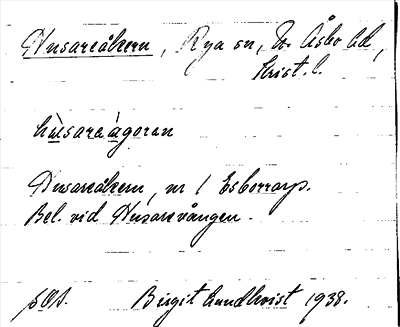 Husaråkern, Rya sn, N. Åsbo hd,
Krist. l.
hùsaràgoran
Husaråkern, nr 1 Esborrarp.
Bel. vid Husarevången.
Birgit Lundkvist 1938.